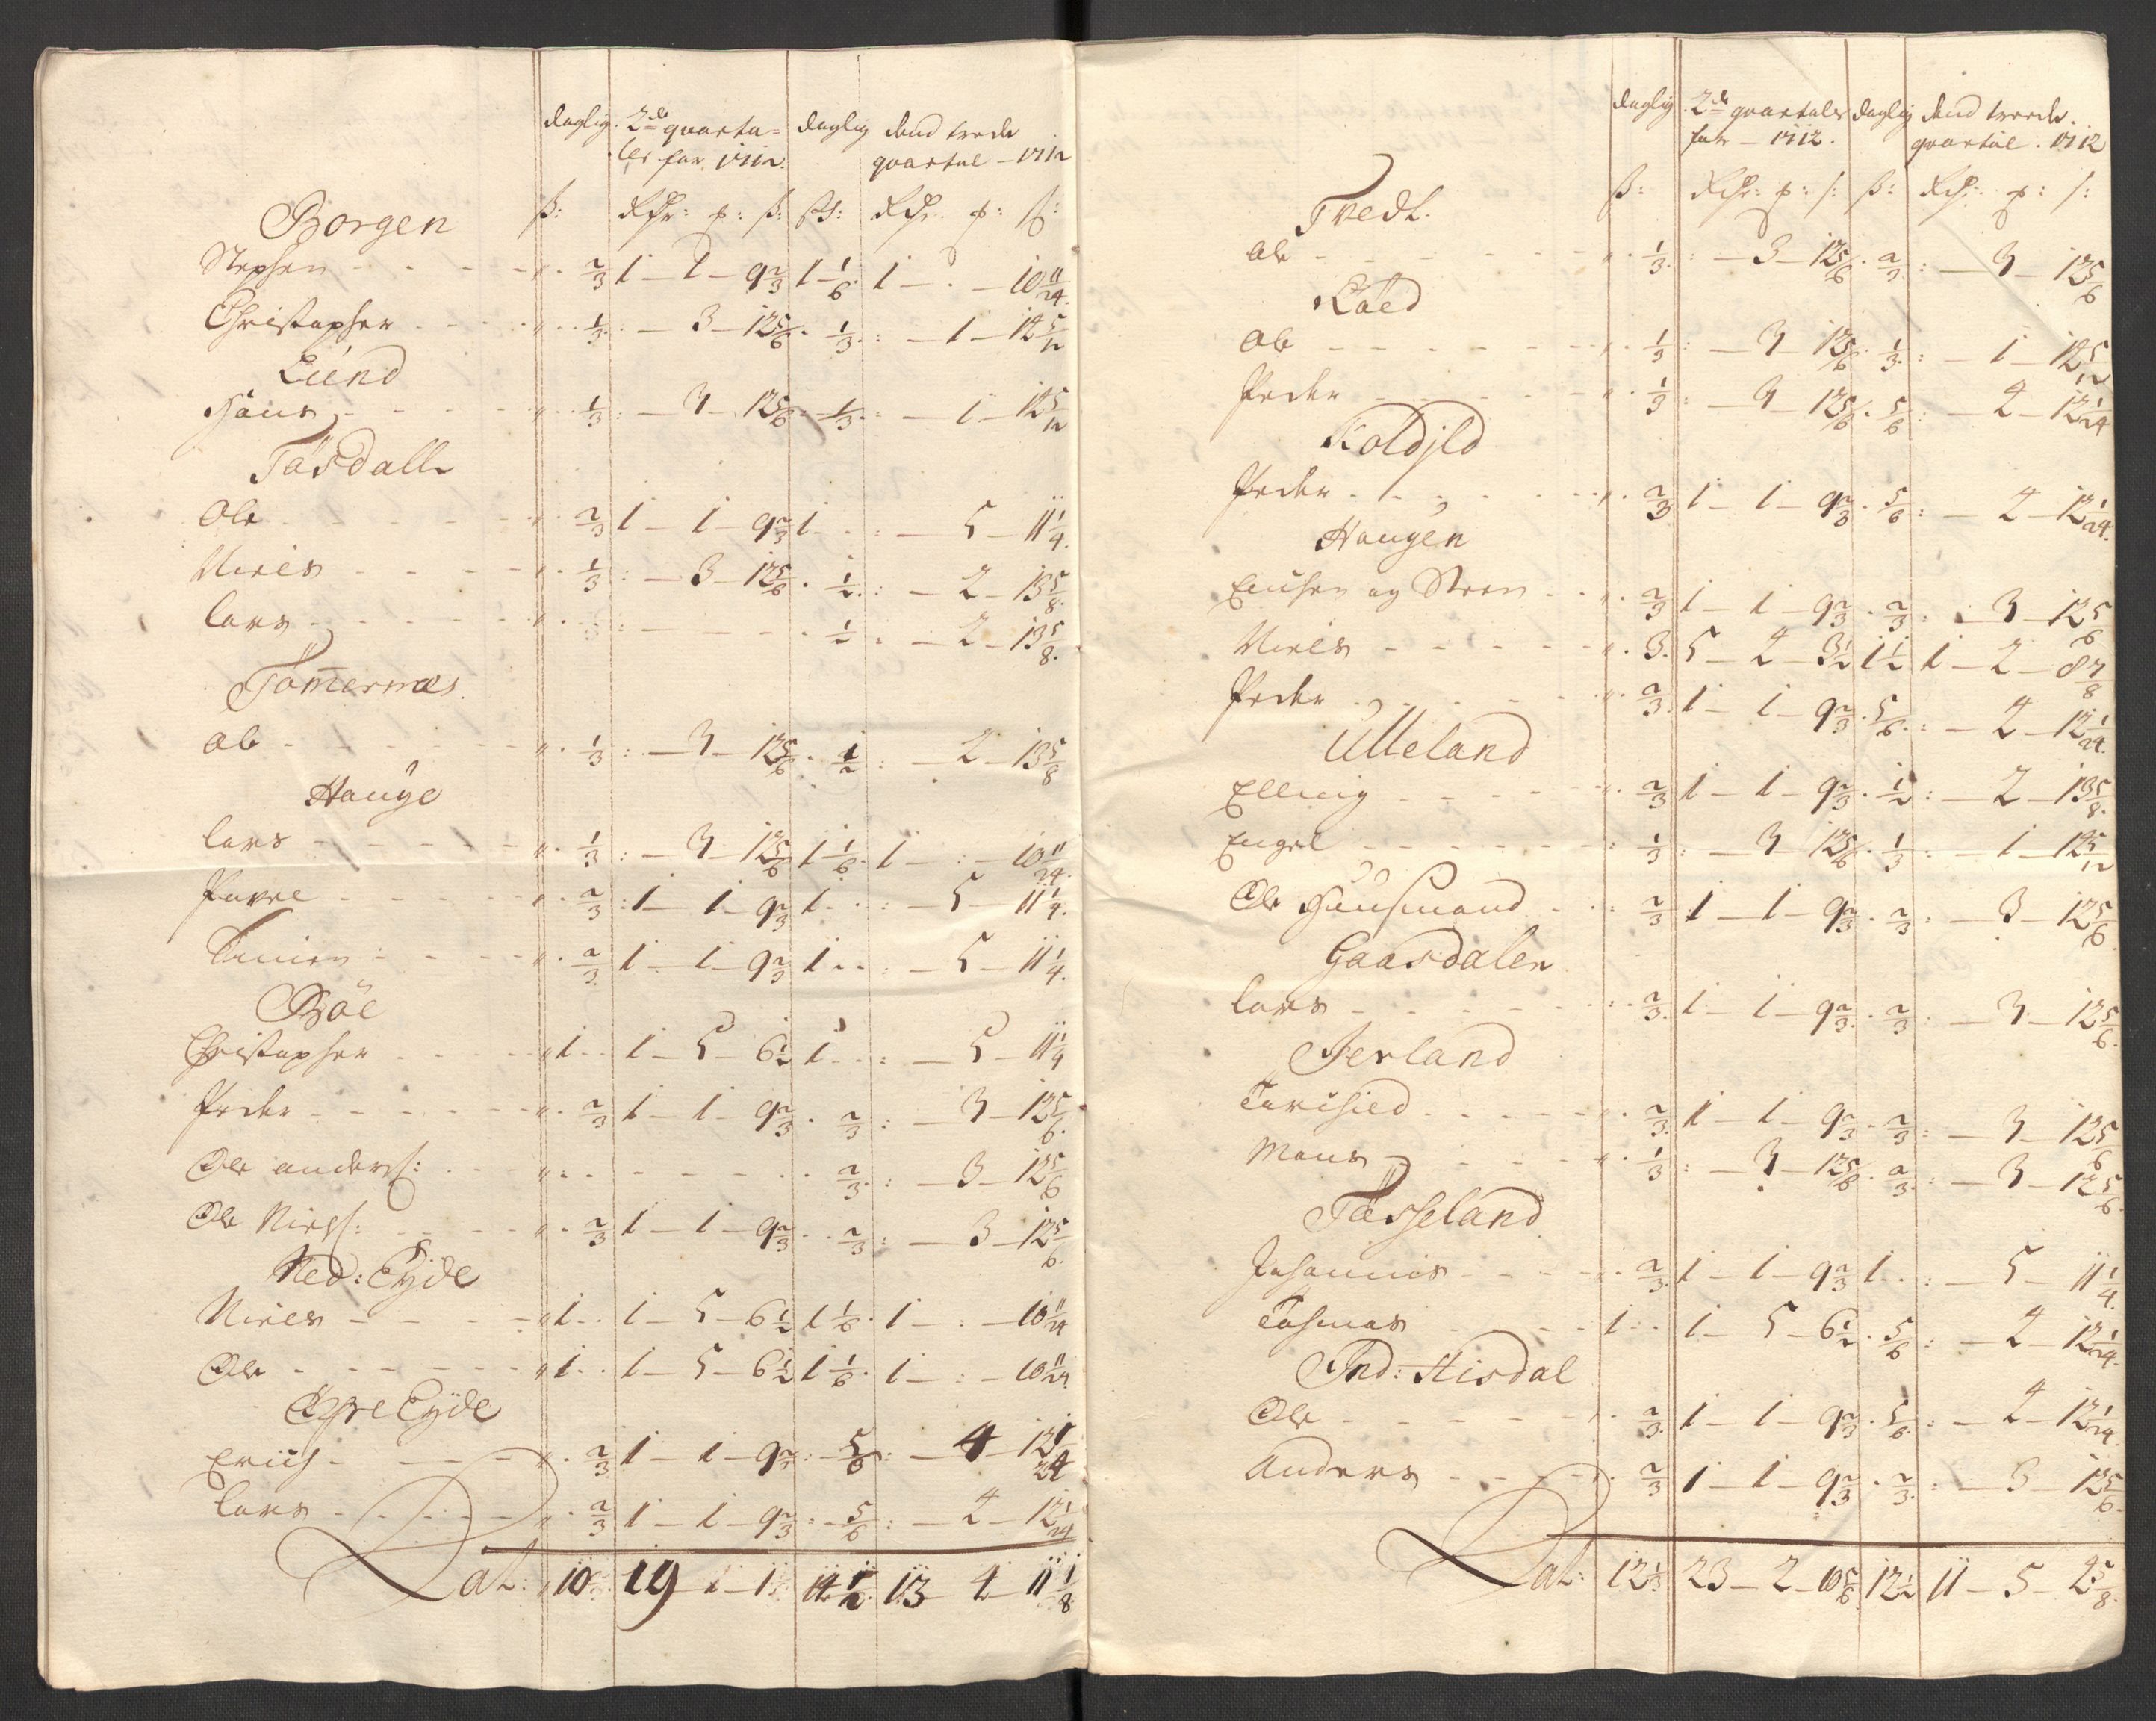 daglig. 2de quarta= daglig dend trede
ler for 1712. quartal - 1712
Borgen ß: Rdr: p: ß: ß: Rdr. p: ß:
Stephen - - - " . 2/3 1 - 1 - 9 2/3 1 - 1/6 1 - . - 10 11/24.
Christopher - - " . 1/3 : - 3 - 12 5/6 . 1/3 : - 1 - 14 5/12
Lund
Hans - - - " . 1/3 : - 3 - 12 5/6 : 1/3 : - 1 - 14 5/12
Tösdall
Ole - - - " . 2/3 1 - 1 - 9 2/3 1 . . : - 5 - 11 1/4.
Niels - - - " . 1/3 : - 3 - 12 5/6 . 1/2 : - 2 - 13 5/8.
Lars - - - - - - - . 1/2 : - 2 - 13 5/8.
Tömernæs.
Ole - - - " . 1/3 : - 3 - 12 5/6 . 1/2 : - 2 - 13 5/8
Hauge
Lars - - - " . 1/3 : - 3 - 12 5/6 1 1/6 1 - : - 10 11/24.
Povel - - - " . 2/3 : 1 - 1 - 9 2/3 1 . . : - 5 - 11 1/4.
- - - " . 2/3 1 - 1 - 9 2/3 1 . . : - 5 - 11 1/4.
Böe
Christopher - - " 1 . . 1 - 5 - 6 1/2 1 . . : - 5 - 11 1/4
Peder - - - " . 2/3 1 - 1 - 9 2/3 . 2/3 : - 3 - 12 5/6.
Ole anders: . - " . . - - - - . 2/3 : - 3 - 12 5/6
Ole Niels: - - " . 2/3 1 - 1 - 9 2/3 . 2/3 : - 3 - 12 5/6.
Ned: Eyde
Niels - - - " 1 . . 1 - 5 - 6 1/2 1 1/6 . 1 - : - 10 11/24
Ole - - - " 1 . . 1 - 5 - 6 1/2 1 1/6 . 1 - : - 10 11/24
Öfre Eyde
Erich - - - " . 2/3 1 - 1 - 9 2/3 : 5/6 : - 4 - 12 1/24
Lars - - - " . 2/3 1 - 1 - 9 2/3 : 5/6 : - 4 - 12 1/24
Lat: 10 19 - 1 - 1 14 1/2 13 - 4 - 11 1/8
daglig 2de quartaler daglig dend trede
for - 1712. quartal . 1712
Tvedt. ß: Rdr: p: ß: ß: Rdr: p: ß:
Ole - - - " . 1/3 : - 3 - 12 5/6 . 2/3 : - 3 - 12 5/6
Röed
Ole - - - " . 1/3 : - 3 - 12 5/6 . 1/3 : - 1 - 14 5/12
Peder - - - " . 1/3 : - 3 - 12 5/6 . 5/6 : - 4 - 12 1/24
Koldjld
Peder - - - " . 2/3 1 - 1 - 9 2/3 . 5/6 : - 4 - 12 1/24.
Haugen
Knuhen og Sten - " . 2/3 1 - 1 - 9 2/3 . 2/3 : - 3 - 12 5/6
Niels - - - " . 3. 5 - 4 - 3 1/2 1 1/2 1 - 2 - 8 7/8
Peder - - - " . 2/3. 1 - 1 - 9 2/3 . 5/6. : - 4 - 12 1/24.
Ulleland
Elling - - - " . 2/3 1 - 1 - 9 2/3 . 1/2 : - 2 - 13 5/8.
Engel - - - : 1/3 : - 3 - 12 5/6 . 1/3 : - 1 - 14 5/12
Ole Huusmand - : 2/3 1 - 1 - 9 2/3 . 2/3 : - 3 - 12 5/6.
Gaasdalen
Lars - - - : 2/3. 1 - 1 - 9 2/3 . 2/3 : - 3 - 12 5/6.
Jerland
- - - " . 2/3. 1 - 1 - 9 2/3 . 2/3 : - 3 - 12 5/6
Mons - - - " . 1/3 : - 3 - 12 5/6 . 2/3. : - 3 - 12 5/6.
Tösseland
Johannes - - - . 2/3. 1 - 1 - 9 2/3 1 . . : - 5 - 11 1/4.
- - - 1 . . 1 - 5 - 6 1/2 . 5/6 : - 4 - 12 1/24.
Ind: Hisdal
Ole - - - . 2/3. 1 - 1 - 9 2/3 . 5/6 : - 4 - 12 1/24.
Anders - - - . 2/3 1 - 1 - 9 2/3 . 2/3. : - 3 - 12 5/6.
Lat: 12 1/3 23 - 2 - 10 5/6 12 1/2 11 - 5 - 2 5/8.